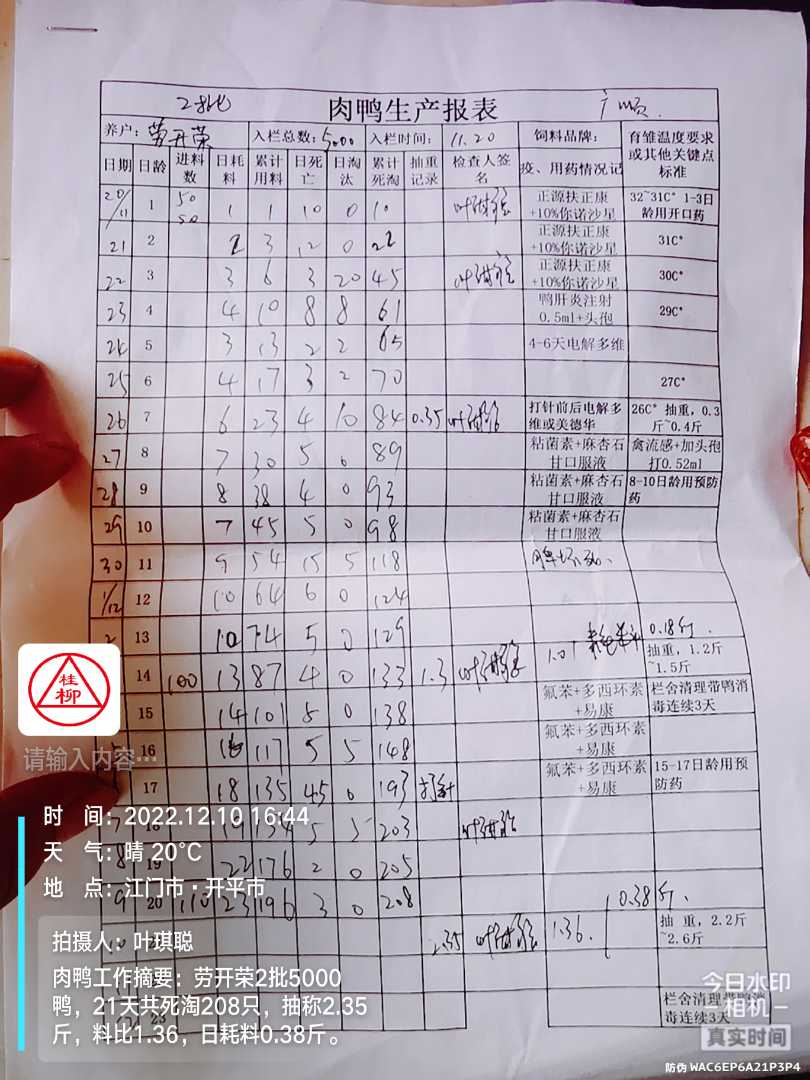 2批 肉鸭生产报表 广顺.
养户: 劳开荣 入栏总数: 5000 入栏时间: 11.20 饲料品牌: 育雏温度要求或其他关键点标准
日期 日龄 进料数 日耗料 累计用料 日死亡 日淘汰 累计死淘 抽重记录 检查人签名 疫、用药情况记
20/11 1 50 50 1 1 10 0 10 正源扶正康+10%你诺沙星 32~31C° 1-3日龄用开口药
21 2 2 3 12 0 22 正源扶正康+10%你诺沙星 31C°
22 3 3 6 3 20 45 正源扶正康+10%你诺沙星 30C°
23 4 4 10 8 8 61 鸭肝炎注射0.5ml+头孢 29C°
24 5 3 13 2 2 65 4-6天电解多维
25 6 4 17 3 2 70 27C°
26 7 6 23 4 10 84 0.35 打针前后电解多维或美德华 26C° 抽重,0.3斤~0.4斤
27 8 7 30 5 0 89 粘菌素+麻杏石甘口服液 禽流感+加头孢打0.52ml
28 9 8 38 4 0 93 粘菌素+麻杏石甘口服液 8-10日龄用预防药
29 10 7 45 5 0 98 粘菌素+麻杏石甘口服液
30 11 9 54 15 5 118
1/12 12 10 64 6 0 124
2 13 10 74 5 0 129 0.18斤.
14 100 13 87 4 0 133 1.3 1.01 抽重,1.2斤~1.5斤
15 14 101 5 0 138 氟苯+多西环素+易康 栏舍清理带鸭消毒连续3天
16 16 117 5 5 148 氟苯+多西环素+易康
17 18 135 45 0 193 打针 氟苯+多西环素+易康 15-17日龄用预防药
7 18 19 154 5 5 203
8 19 22 176 2 0 205
9 20 110 23 196 3 0 208 0.38斤.
2.35 1.36. 抽重,2.2斤~2.6斤
23 栏舍清理带鸭消毒连续3天
桂柳
请输入内容…
时 间: 2022.12.10 16:44
天 气: 晴 20°C
地 点: 江门市·开平市
拍摄人: 叶琪聪
肉鸭工作摘要: 劳开荣2批5000
鸭,21天共死淘208只,抽称2.35
斤,料比1.36,日耗料0.38斤。
今日水印
相机
真实时间
防伪 WAC6EP6A21P3P4